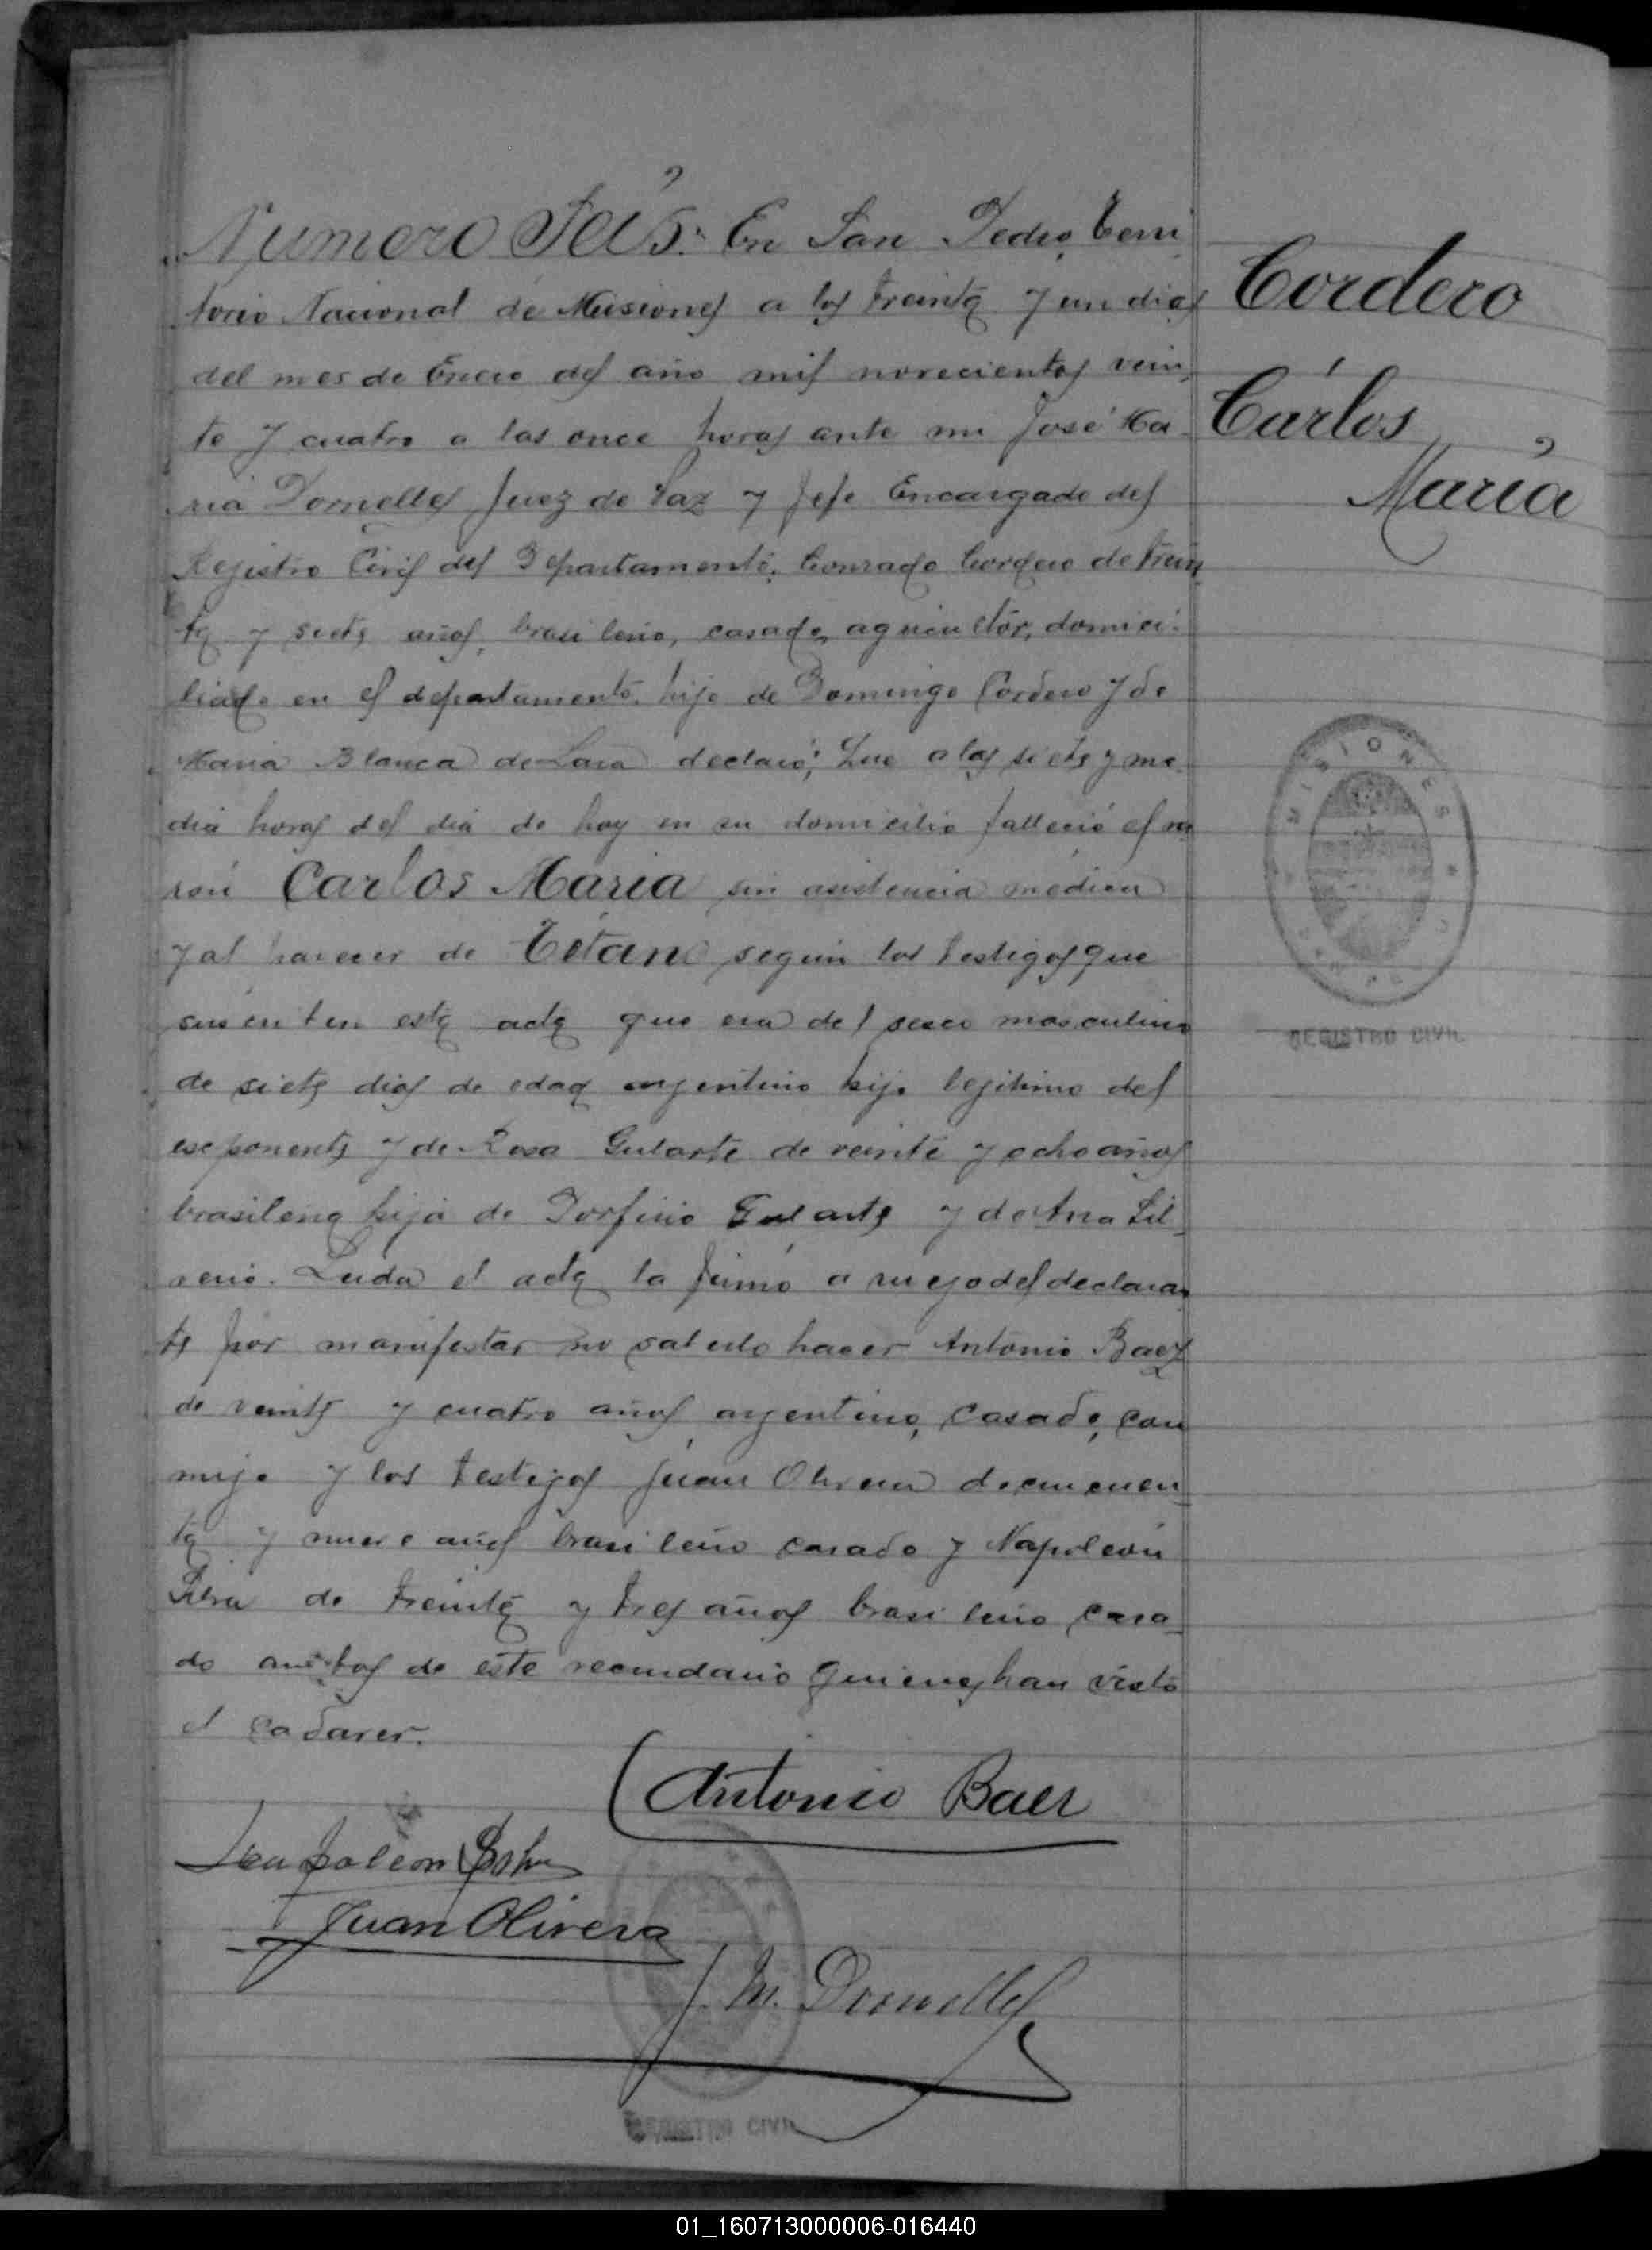 Numero Seis: En San Pedro, Terri
torio Nacional de Misiones a los treinta y un dias
del mes de Enero del año mil novecientos vein
te y cuatro a las once horas ante mi José Ma
ria Dornelles Juez de Paz y Jefe Encargado del
Registro Civil del Departamento, Conrado Cordero de trein
ta y siete años, brasileño, casado, agricultor, domici-
liado en el departamento, hijo de Domingo Cordero y de
Maria Blanca de Lara declaró; Que a las siete y me
dia horas del dia de hoy en su domicilio falleció el va
rón Carlos Maria sin asistencia médica
y al parecer de Tétano según los testigos que
suscriben esta acta que era del sexo masculino
de siete dias de edad argentino hijo legitimo del
exponente y de Rosa Gularte de veinte y ocho años
brasileña hija de Porfirio Gularte y de Ana Sil
verio. Leida el acta la firmó a ruego del declaran
te por manifestar no saberlo hacer Antonio Baez
de veinte y cuatro años argentino, casado, con
migo y los testigos Juan Olivera de cincuen
ta y nueve años brasileño casado y Napoleón
Silva de treinta y tres años brasileño casa
do ambos de este vecindario quienes han visto
el cadaver.
Antonio Baez
Napoleon Silva
Juan Olivera
J. M. Dornelles
REGISTRO CIVIL
Cordero
Carlos
Maria
MISIONES
REGISTRO CIVIL
01_160713000006-016440